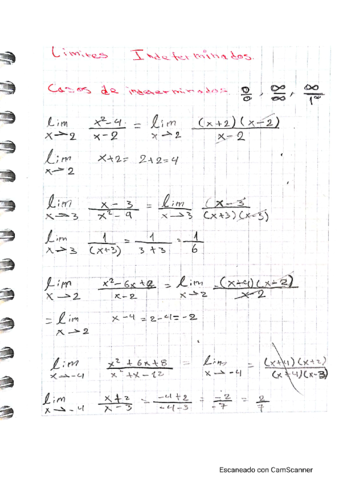 Limites Indeterminados.
Casos de indeterminados: 0/0, ∞/∞, ∞/1^∞
lim x→2 (x²-4)/(x-2) = lim x→2 (x+2)(x-2)/(x-2)
lim x→2 x+2 = 2+2 = 4
lim x→3 (x-3)/(x²-9) = lim x→3 (x-3)/((x+3)(x-3))
lim x→3 1/(x+3) = 1/(3+3) = 1/6
lim x→2 (x²-6x+8)/(x-2) = lim x→2 (x+4)(x+2)/(x-2)
= lim x→2 x-4 = 2-4 = -2
lim x→-4 (x²+6x+8)/(x²+x-12) = lim x→-4 (x+4)(x+2)/((x+4)(x-3))
lim x→-4 (x+2)/(x-3) = (-4+2)/(-4-3) = -2/-7 = 2/7
Escaneado con CamScanner